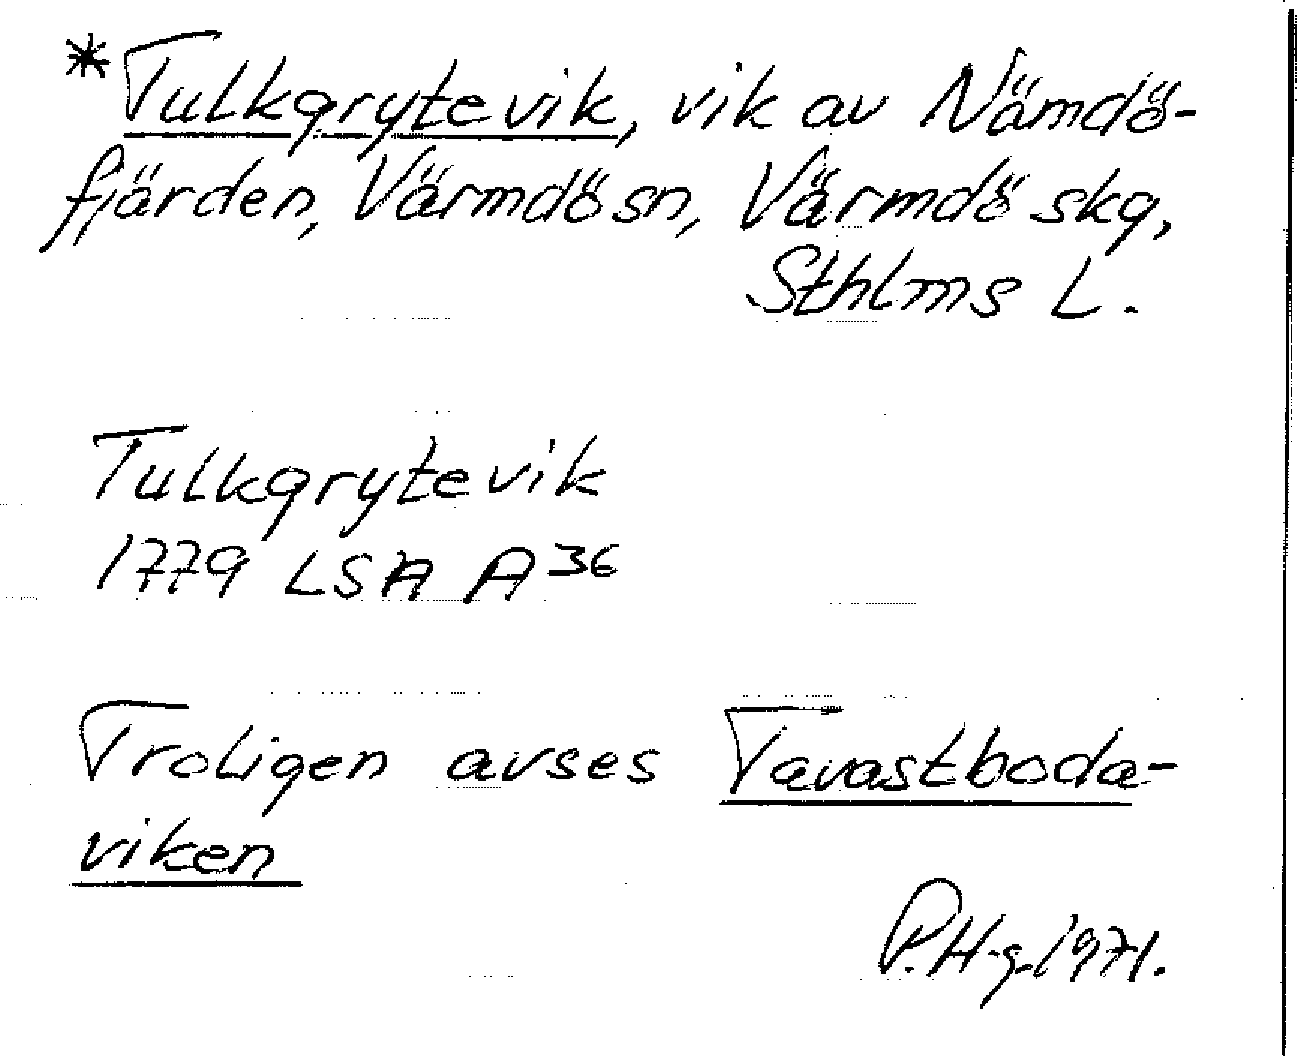 *Tulkgrytevik, vik av Nämdö-
fjärden, Värmdö sn, Värmdö skg,
Sthlms L.
Tulkgrytevik
1779 LSA A36
Troligen avses Tavastboda-
viken
P.H-g. 1971.